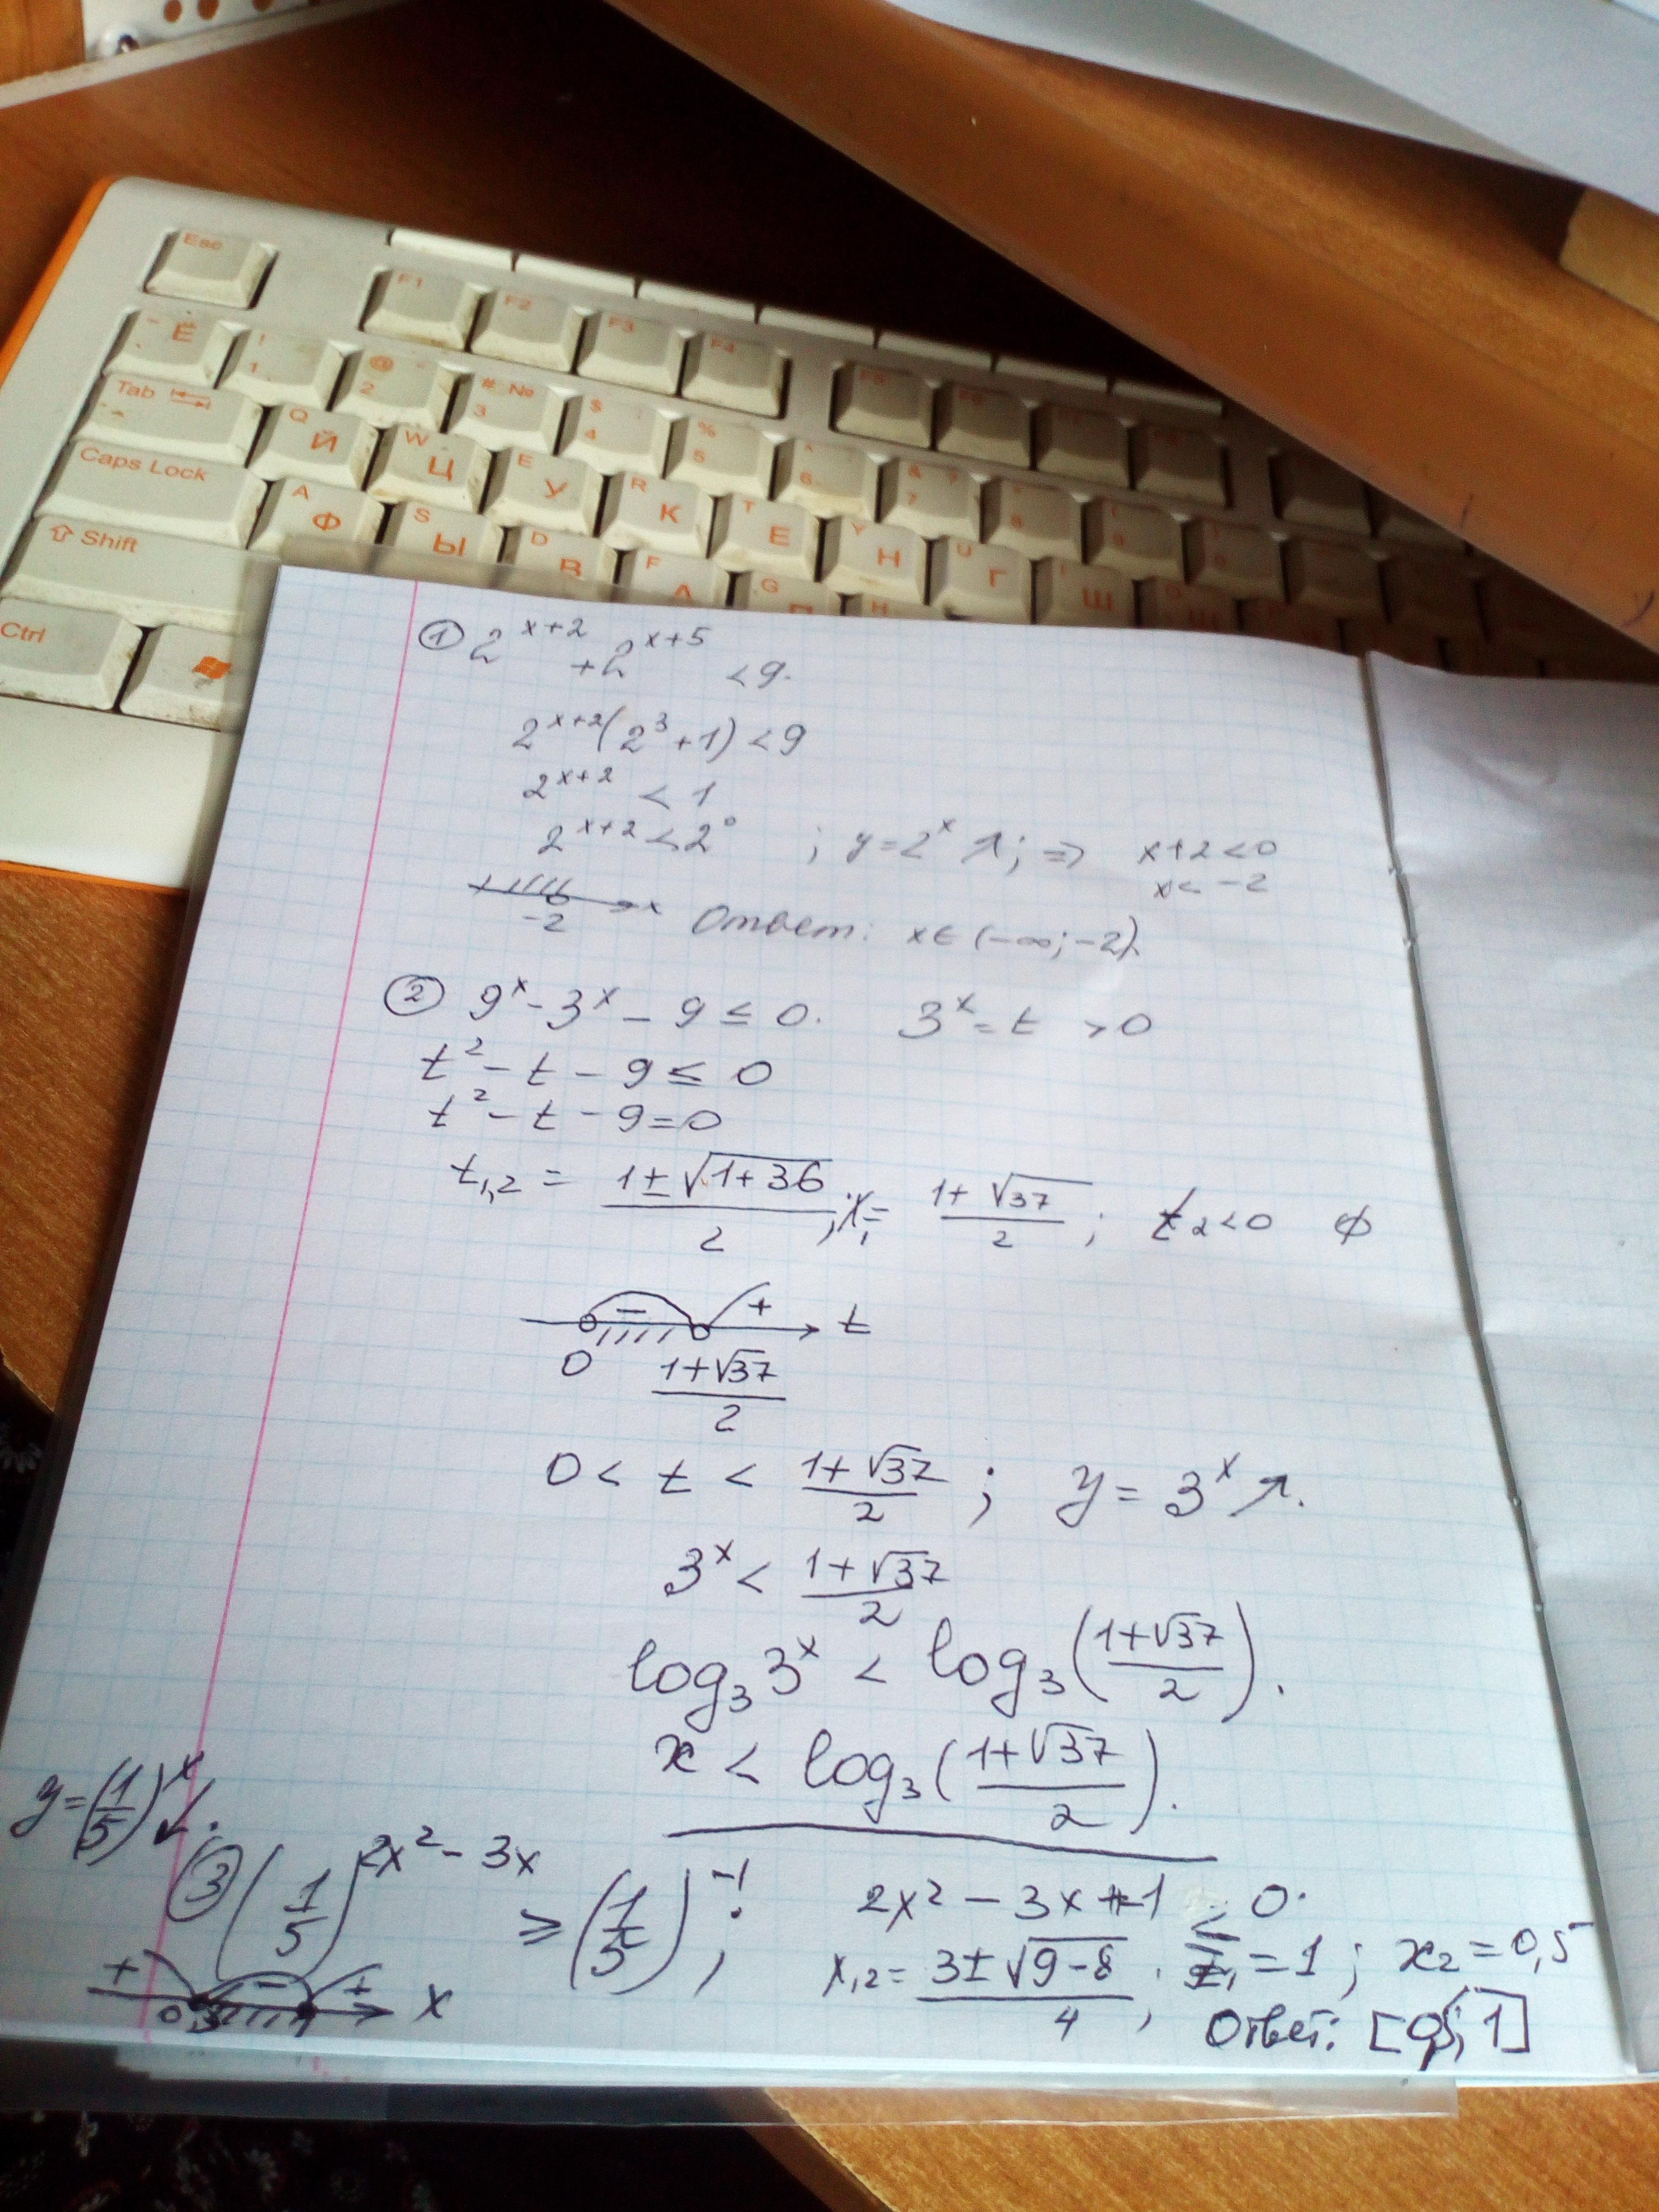 Esc
F1
F2
F3
F4
F5
Ё
!
1
@
2
# №
3
$
4
%
5
^
6
& ?
7
Tab
Q
Й
W
Ц
E
У
R
К
T
Е
Y
Н
U
Г
Ш
Caps Lock
A
Ф
S
Ы
D
В
F
А
G
П
H
Shift
Ctrl
① 2^{x+2} + 2^{x+5} < 9.
2^{x+2}(2^3+1) < 9
2^{x+2} < 1
2^{x+2} < 2^0 ; y=2^x ↗; ⇒ x+2<0
x< -2
-2 x Ответ: x∈(-∞;-2).
② 9^x - 3^x - 9 ≤ 0. 3^x = t > 0
t^2 - t - 9 ≤ 0
t^2 - t - 9 = 0
t_{1,2} = (1±√(1+36))/2 ; t_1 = (1+√37)/2 ; t_2<0 ∅
− + t
0 (1+√37)/2
0 < t < (1+√37)/2 ; y = 3^x ↗.
3^x < (1+√37)/2
log_3 3^x < log_3((1+√37)/2).
x < log_3((1+√37)/2).
y=(1/5)^x ↙.
③ (1/5)^{2x^2-3x} ≥ (1/5)^{-1} ; 2x^2 - 3x + 1 ≤ 0.
x_{1,2} = (3±√(9-8))/4 ; x_1 = 1 ; x_2 = 0,5
+ − + x
0,5 1
Ответ: [0,5; 1]